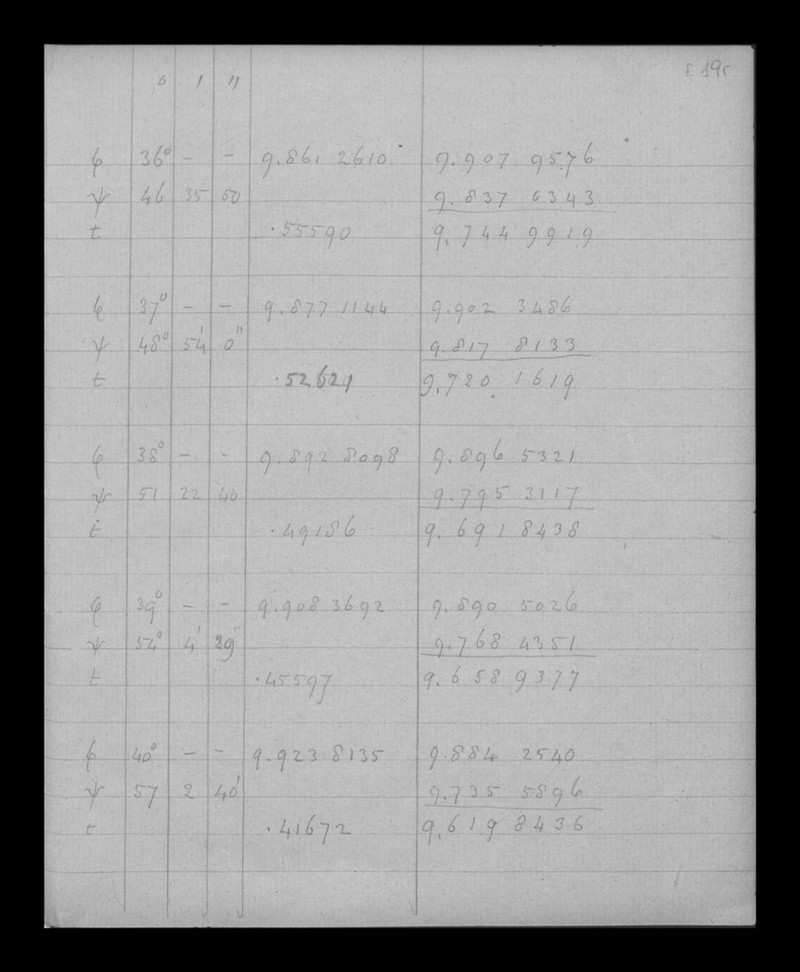 f. 19r
° ' "
φ 36° – – 9.861 2610 9.907 9576
ψ 46 35 50 9.837 0343
t .55590 9.744 9919
φ 37° – – 9.877 1144 9.902 3486
ψ 48° 54' 0" 9.817 8133
t .52621 9.720 1619
φ 38° – – 9.892 8098 9.896 5321
ψ 51 22 40 9.795 3117
t .49186 9.691 8438
φ 39° – – 9.908 3692 9.890 5026
ψ 54° 4' 29" 9.768 4351
t .45597 9.658 9377
φ 40° – – 9.923 8135 9.884 2540
ψ 57 2 40 9.735 5896
t .41672 9.619 8436